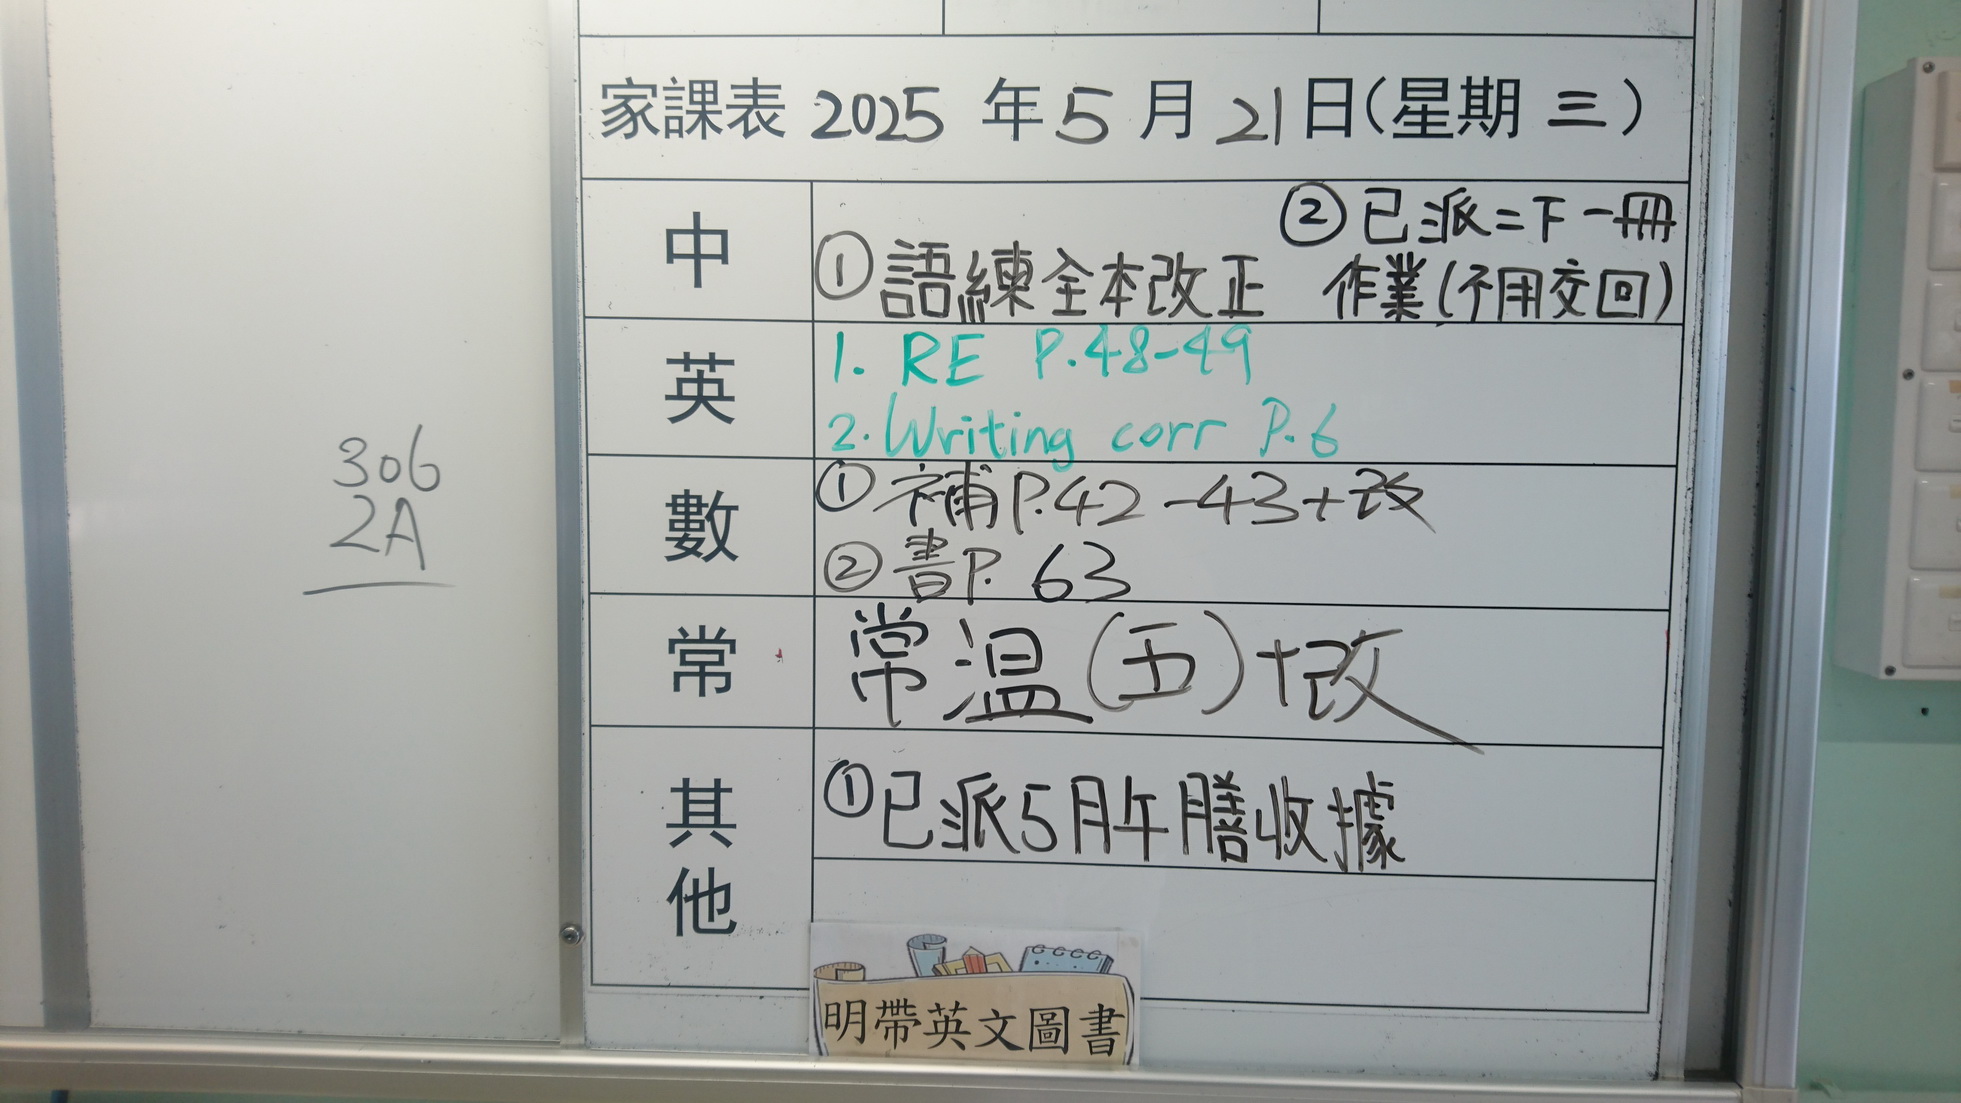 306
2A
家課表 2025 年 5 月 21 日(星期 三)
中
①語練全本改正
②已派二下一冊
作業(不用交回)
英
1. RE P.48-49
2. Writing corr P.6
數
①補P.42-43+改
②書P. 63
常
常溫(五)+改
其他
①已派5月午膳收據
明帶英文圖書